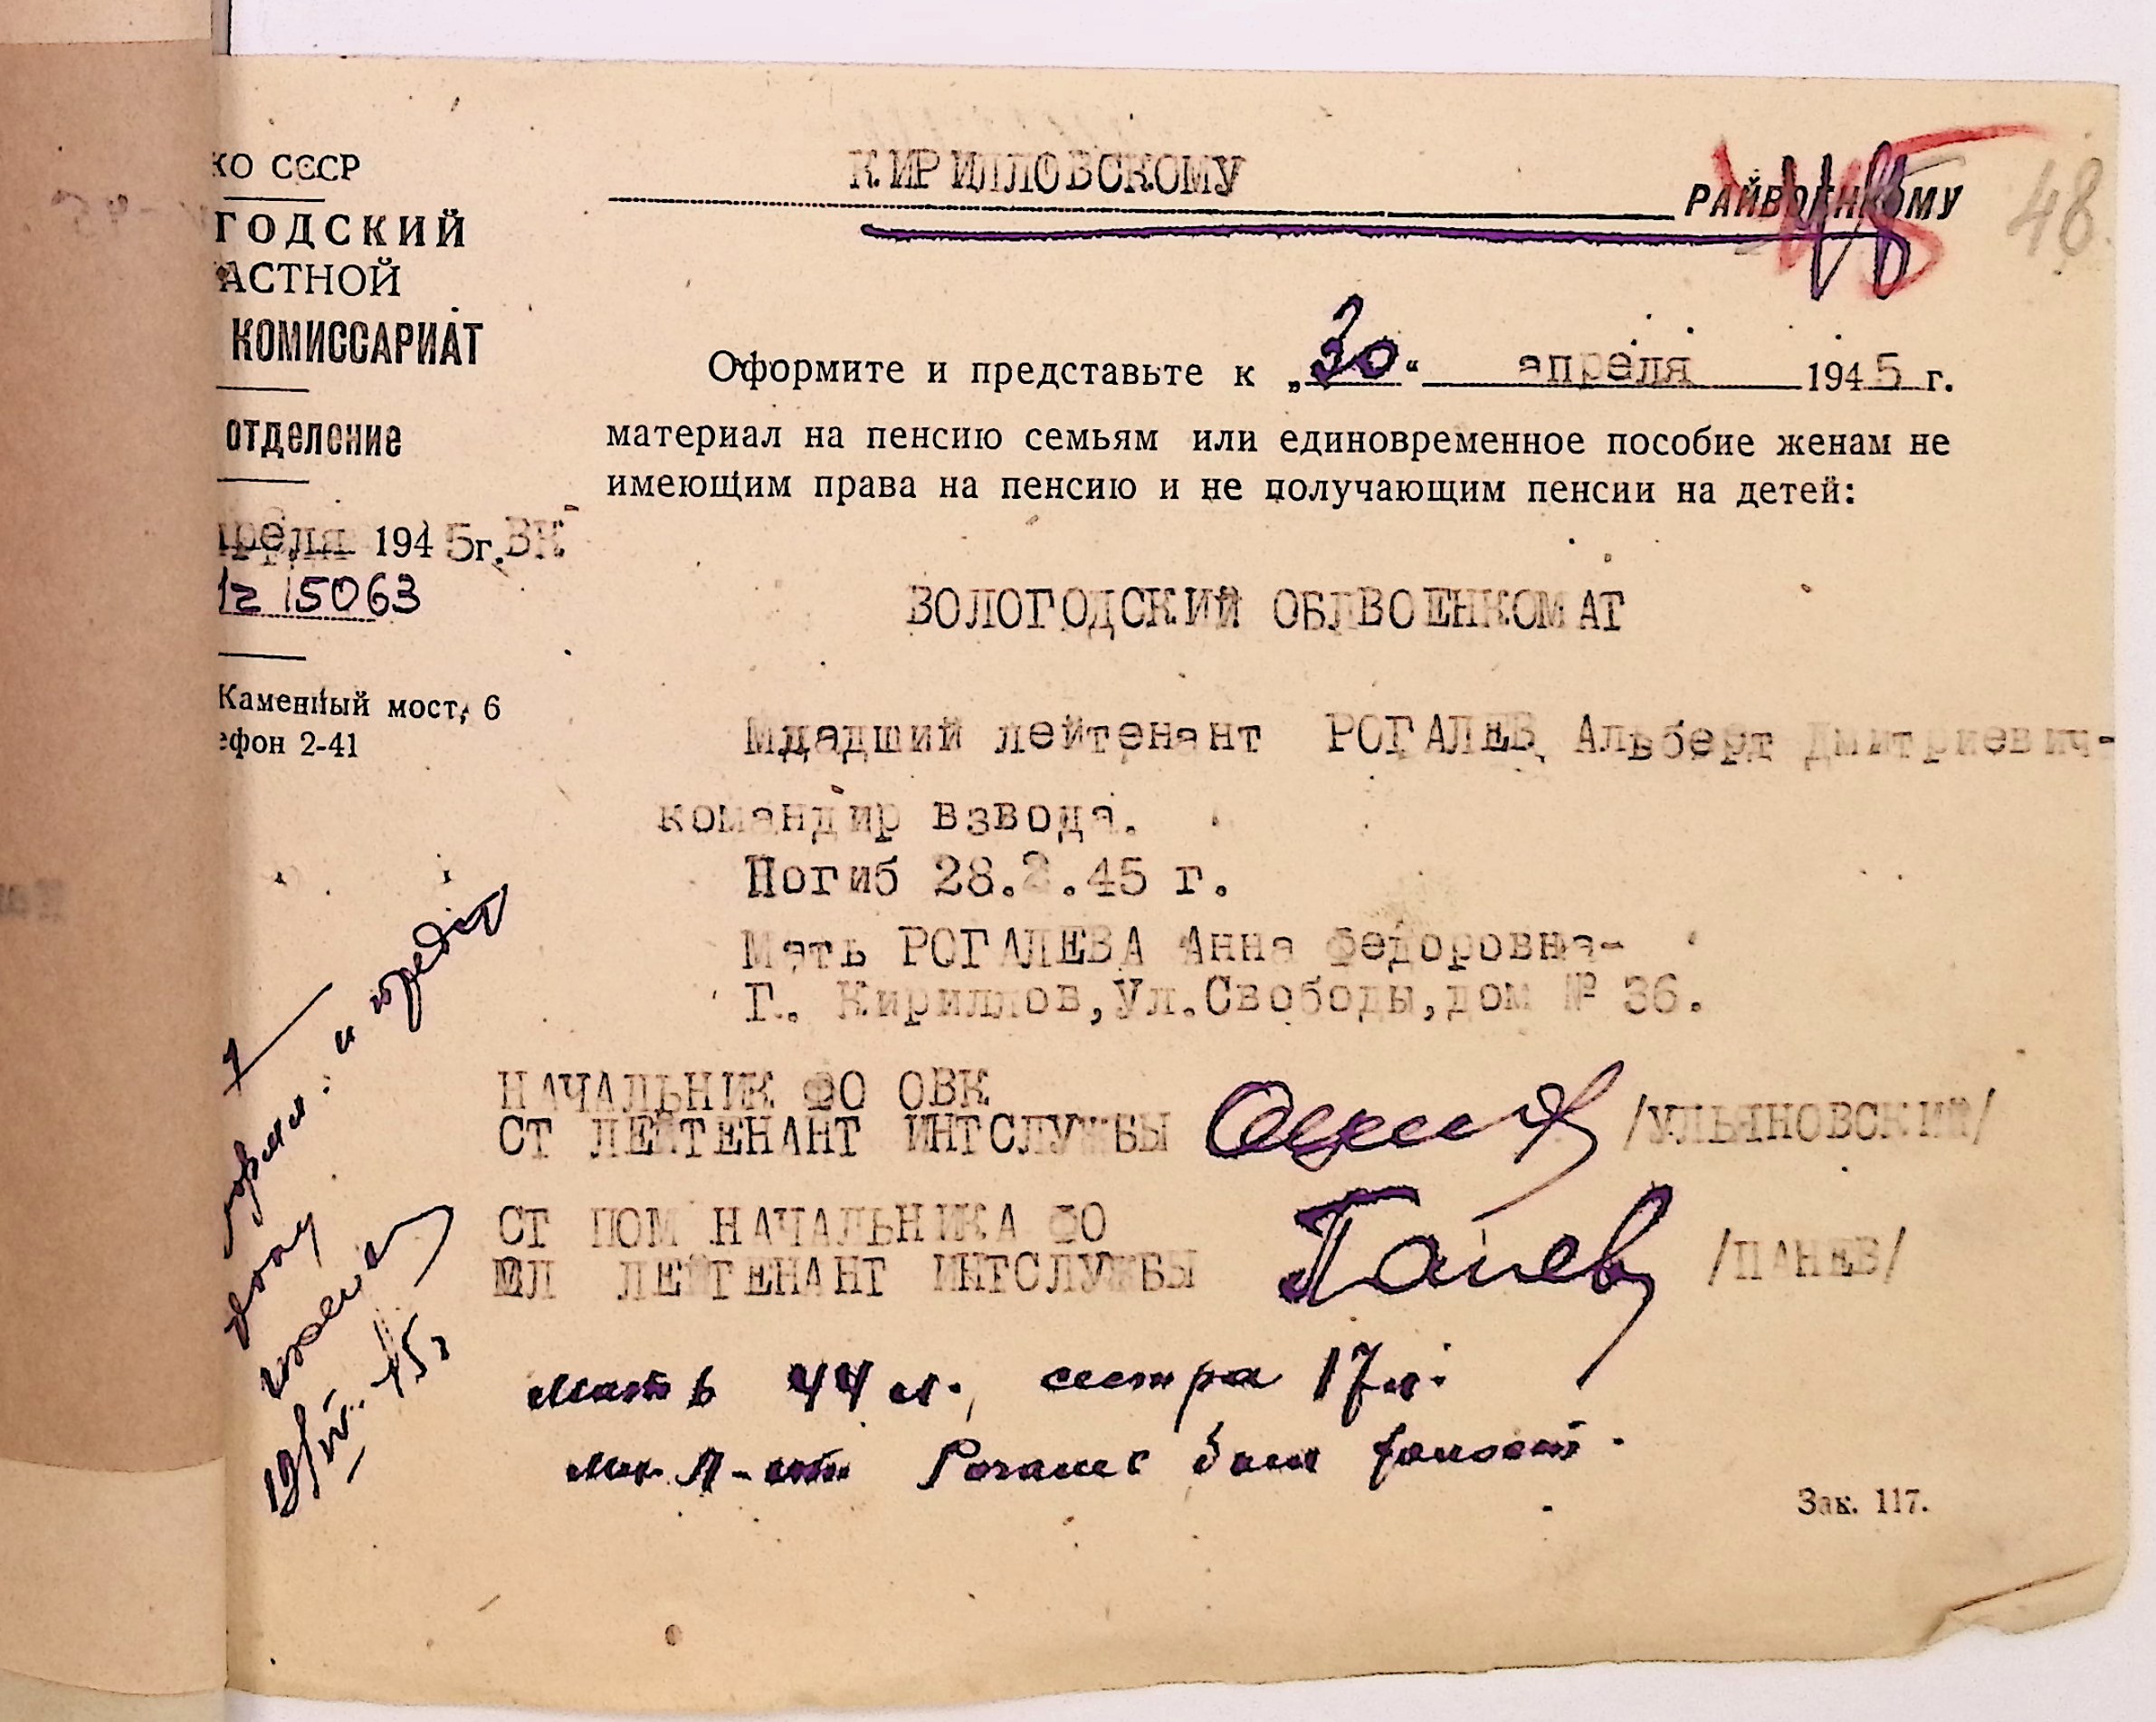 КО СССР
ГОДСКИЙ
АСТНОЙ
КОМИССАРИАТ
отделение
преля 1945г. ВК
1г 15063
Каменный мост, 6
ефон 2-41
КИРИЛЛОВСКОМУ РАЙВОЕНКОМУ
48
Оформите и представьте к „30“ апреля 1945 г.
материал на пенсию семьям или единовременное пособие женам не
имеющим права на пенсию и не получающим пенсии на детей:
ВОЛОГОДСКИЙ ОБЛВОЕНКОМАТ
Младший лейтенант РОГАЛЕВ Альберт Дмитриевич-
командир взвода.
Погиб 28.2.45 г.
Мать РОГАЛЕВА Анна Федоровна-
Г. Кириллов, Ул.Свободы, дом № 36.
НАЧАЛЬНИК ФО ОВК
СТ ЛЕЙТЕНАНТ ИНТСЛУЖБЫ /УЛЬЯНОВСКИЙ/
СТ ПОМ НАЧАЛЬНИКА ФО
МЛ ЛЕЙТЕНАНТ ИНТСЛУЖБЫ Панев /ПАНЕВ/
мать 44 л., сестра 17 л.
мл. л-нт Рогалев был холост.
19/IV-45г
Зак. 117.